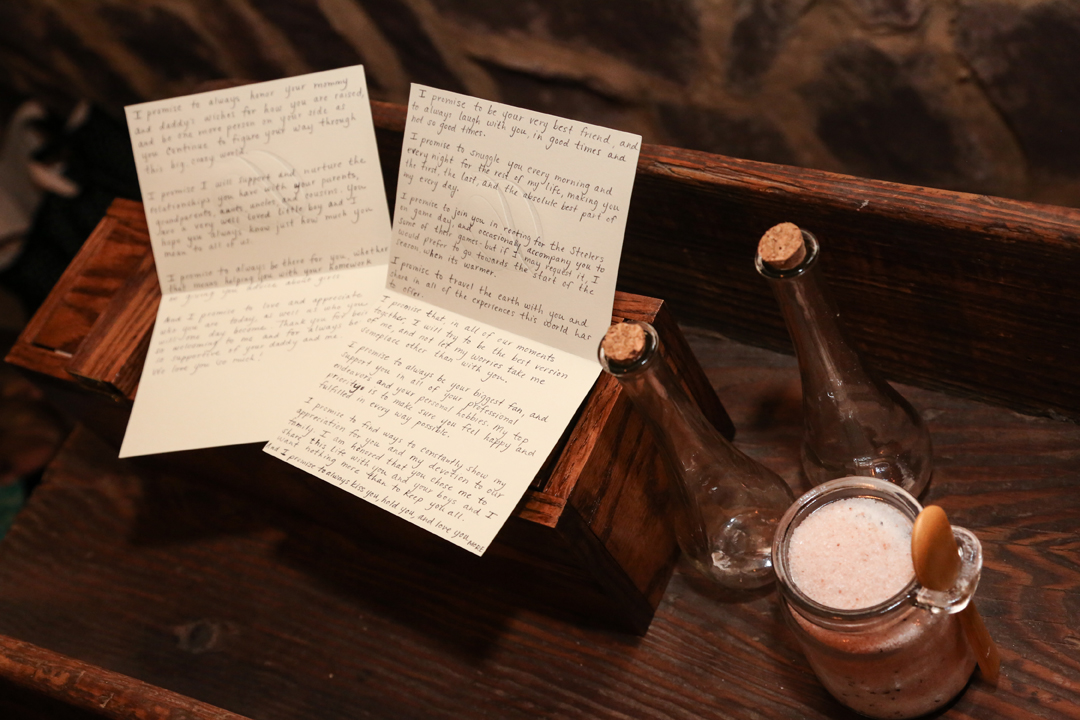 I promise to always honor your mommy
and daddy's wishes for how you are raised,
and be the more person on your side as
you continue to figure your way through
this big crazy world.
I promise I will support and nurture the
relationships you have with your parents,
grandparents, aunts, uncles, and cousins. You
are a very well loved little boy and I
hope you always know just how much you
mean to all of us.
I promise to always be there for you, whether
that means helping you with your homework
or giving you advice about girls.
And I promise to love and appreciate
who you are today, as well as who you
will one day become. Thank you for being
so welcoming to me and for always being
so supportive of your daddy and me.
We love you so much!
I promise to be your very best friend, and
to always laugh with you, in good times and
not so good times.
I promise to snuggle you every morning and
every night for the rest of my life, making you
the first, the last, and the absolute best part of
my every day.
I promise to join you in rooting for the Steelers
on game day, and occasionally accompany you to
some of their games - but if I may request it, I
would prefer to go towards the start of the
season, when its warmer.
I promise to travel the earth with you and
share in all of the experiences this world has
to offer.
I promise that in all of our moments
together I will try to be the best version
of me, and not let my worries take me
someplace other than with you.
I promise to always be your biggest fan, and
support you in all of your professional
endeavors and your personal hobbies. My top
priority is to make sure you feel happy and
fulfilled in every way possible.
I promise to find ways to constantly show my
appreciation for you and my devotion to our
family. I am honored that you chose me to
share this life with you and your boys and I
want nothing more than to keep you all.
And I promise to always kiss you, hold you, and love you MORE